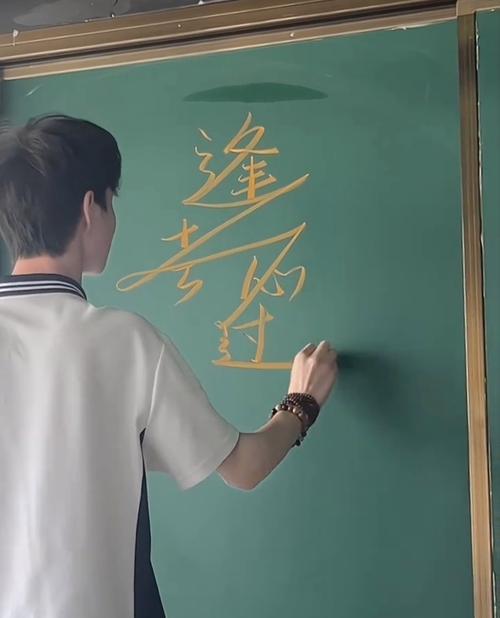 逢
考必
过